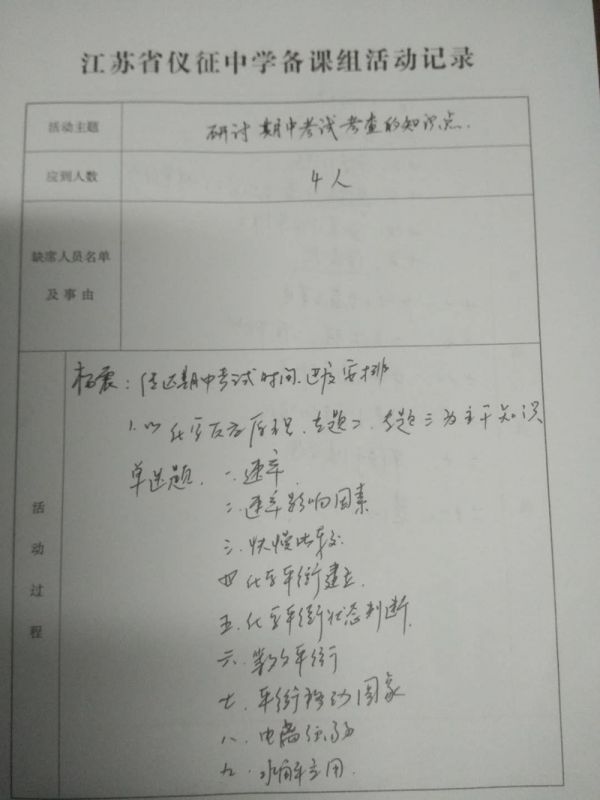 江苏省仪征中学备课组活动记录
活动主题 研讨期中考试考查的知识点.
应到人数 4人
缺席人员名单
及事由
活动过程
杨震：传达期中考试时间、进度安排
1.以化学反应原理、专题二、专题三为主干知识
单选题. 一.速率
二.速率影响因素
三.快慢比较
四.化学平衡建立.
五.化学平衡状态判断.
六.等效平衡
七.平衡移动图象
八.电离强弱
九.水解应用.